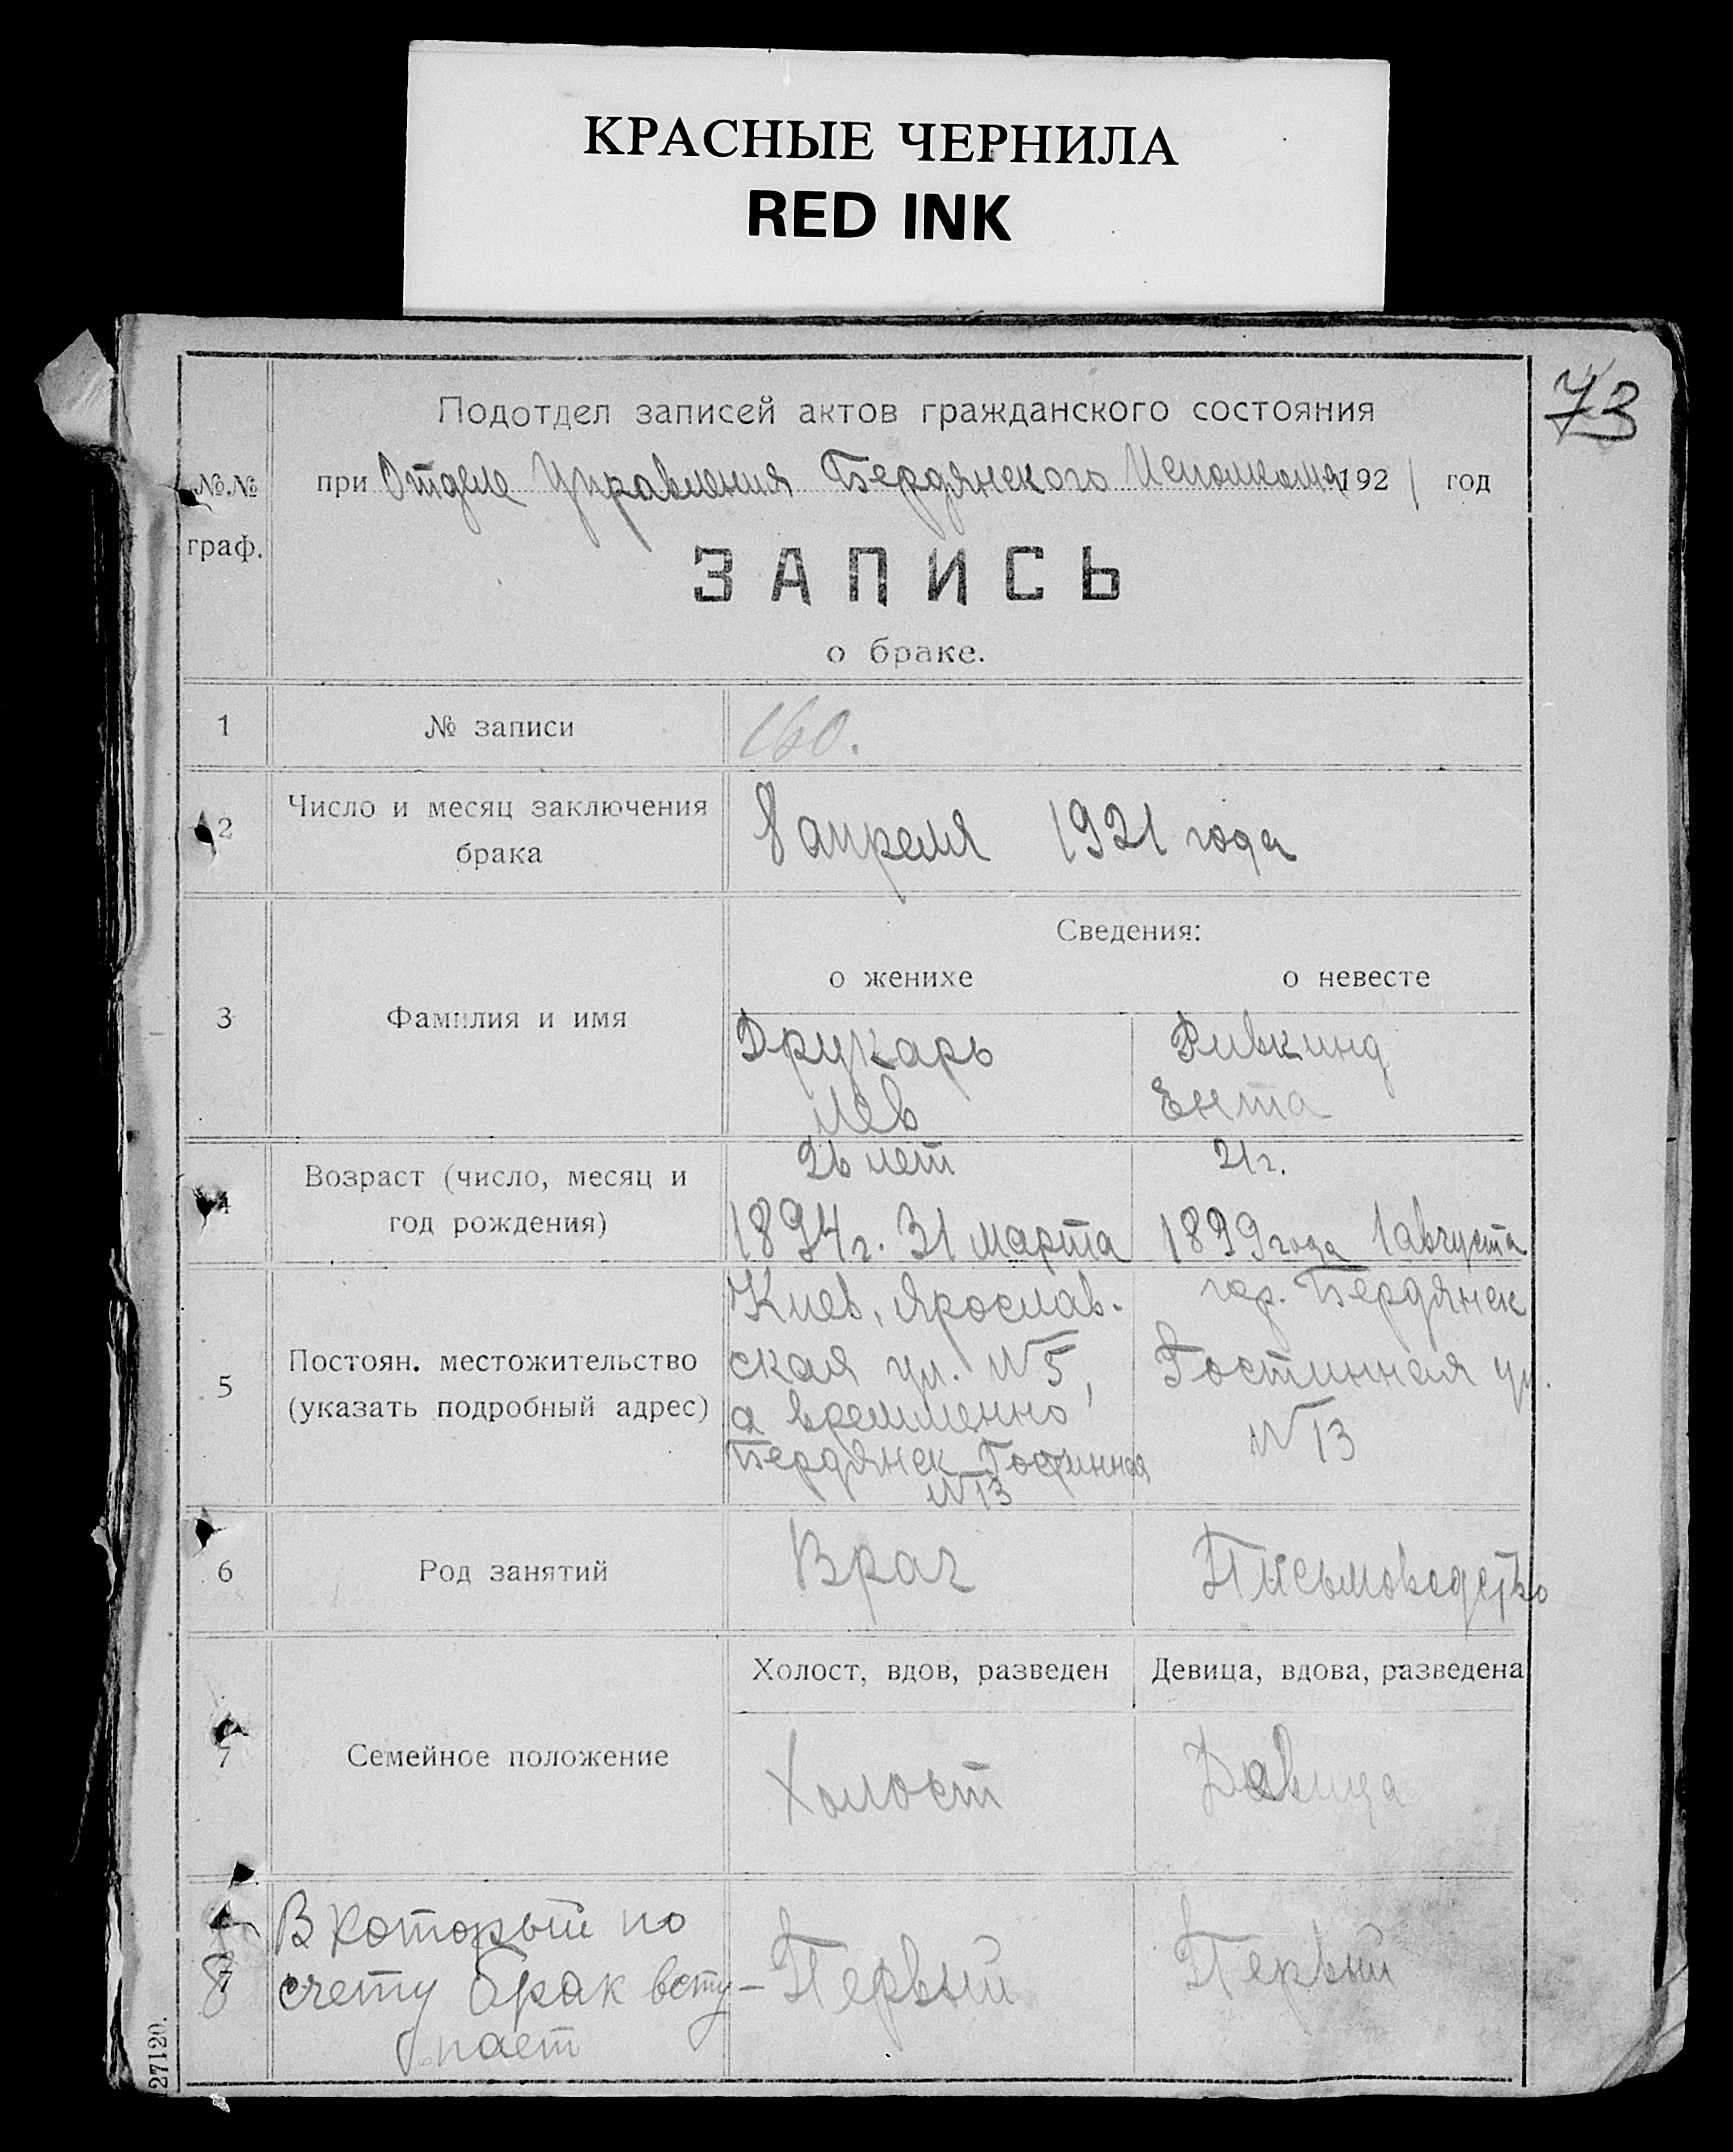 КРАСНЫЕ ЧЕРНИЛА
RED INK
73
Подотдел записей актов гражданского состояния
№.№ граф.
при Отделе Управления Бердянского Исполкома 1921 год
ЗАПИСЬ
о браке.
1 № записи 160.
2 Число и месяц заключения брака 8 апреля 1921 года
Сведения:
о женихе о невесте
3 Фамилия и имя
Друкарь Ривкинд
Лев Ента
4 Возраст (число, месяц и год рождения)
26 лет 21 г.
1894 г. 31 марта 1899 года 1 августа
5 Постоян. местожительство
(указать подробный адрес)
Киев, Ярослав-
ская ул. №5,
а временно
Бердянск Гостинная
№13
гор. Бердянск
Гостинная ул.
№13
6 Род занятий Врач Письмоводство
Холост, вдов, разведен Девица, вдова, разведена
7 Семейное положение Холост Девица
8 В который по
счету брак всту-
пает
Первый Первый
27120.